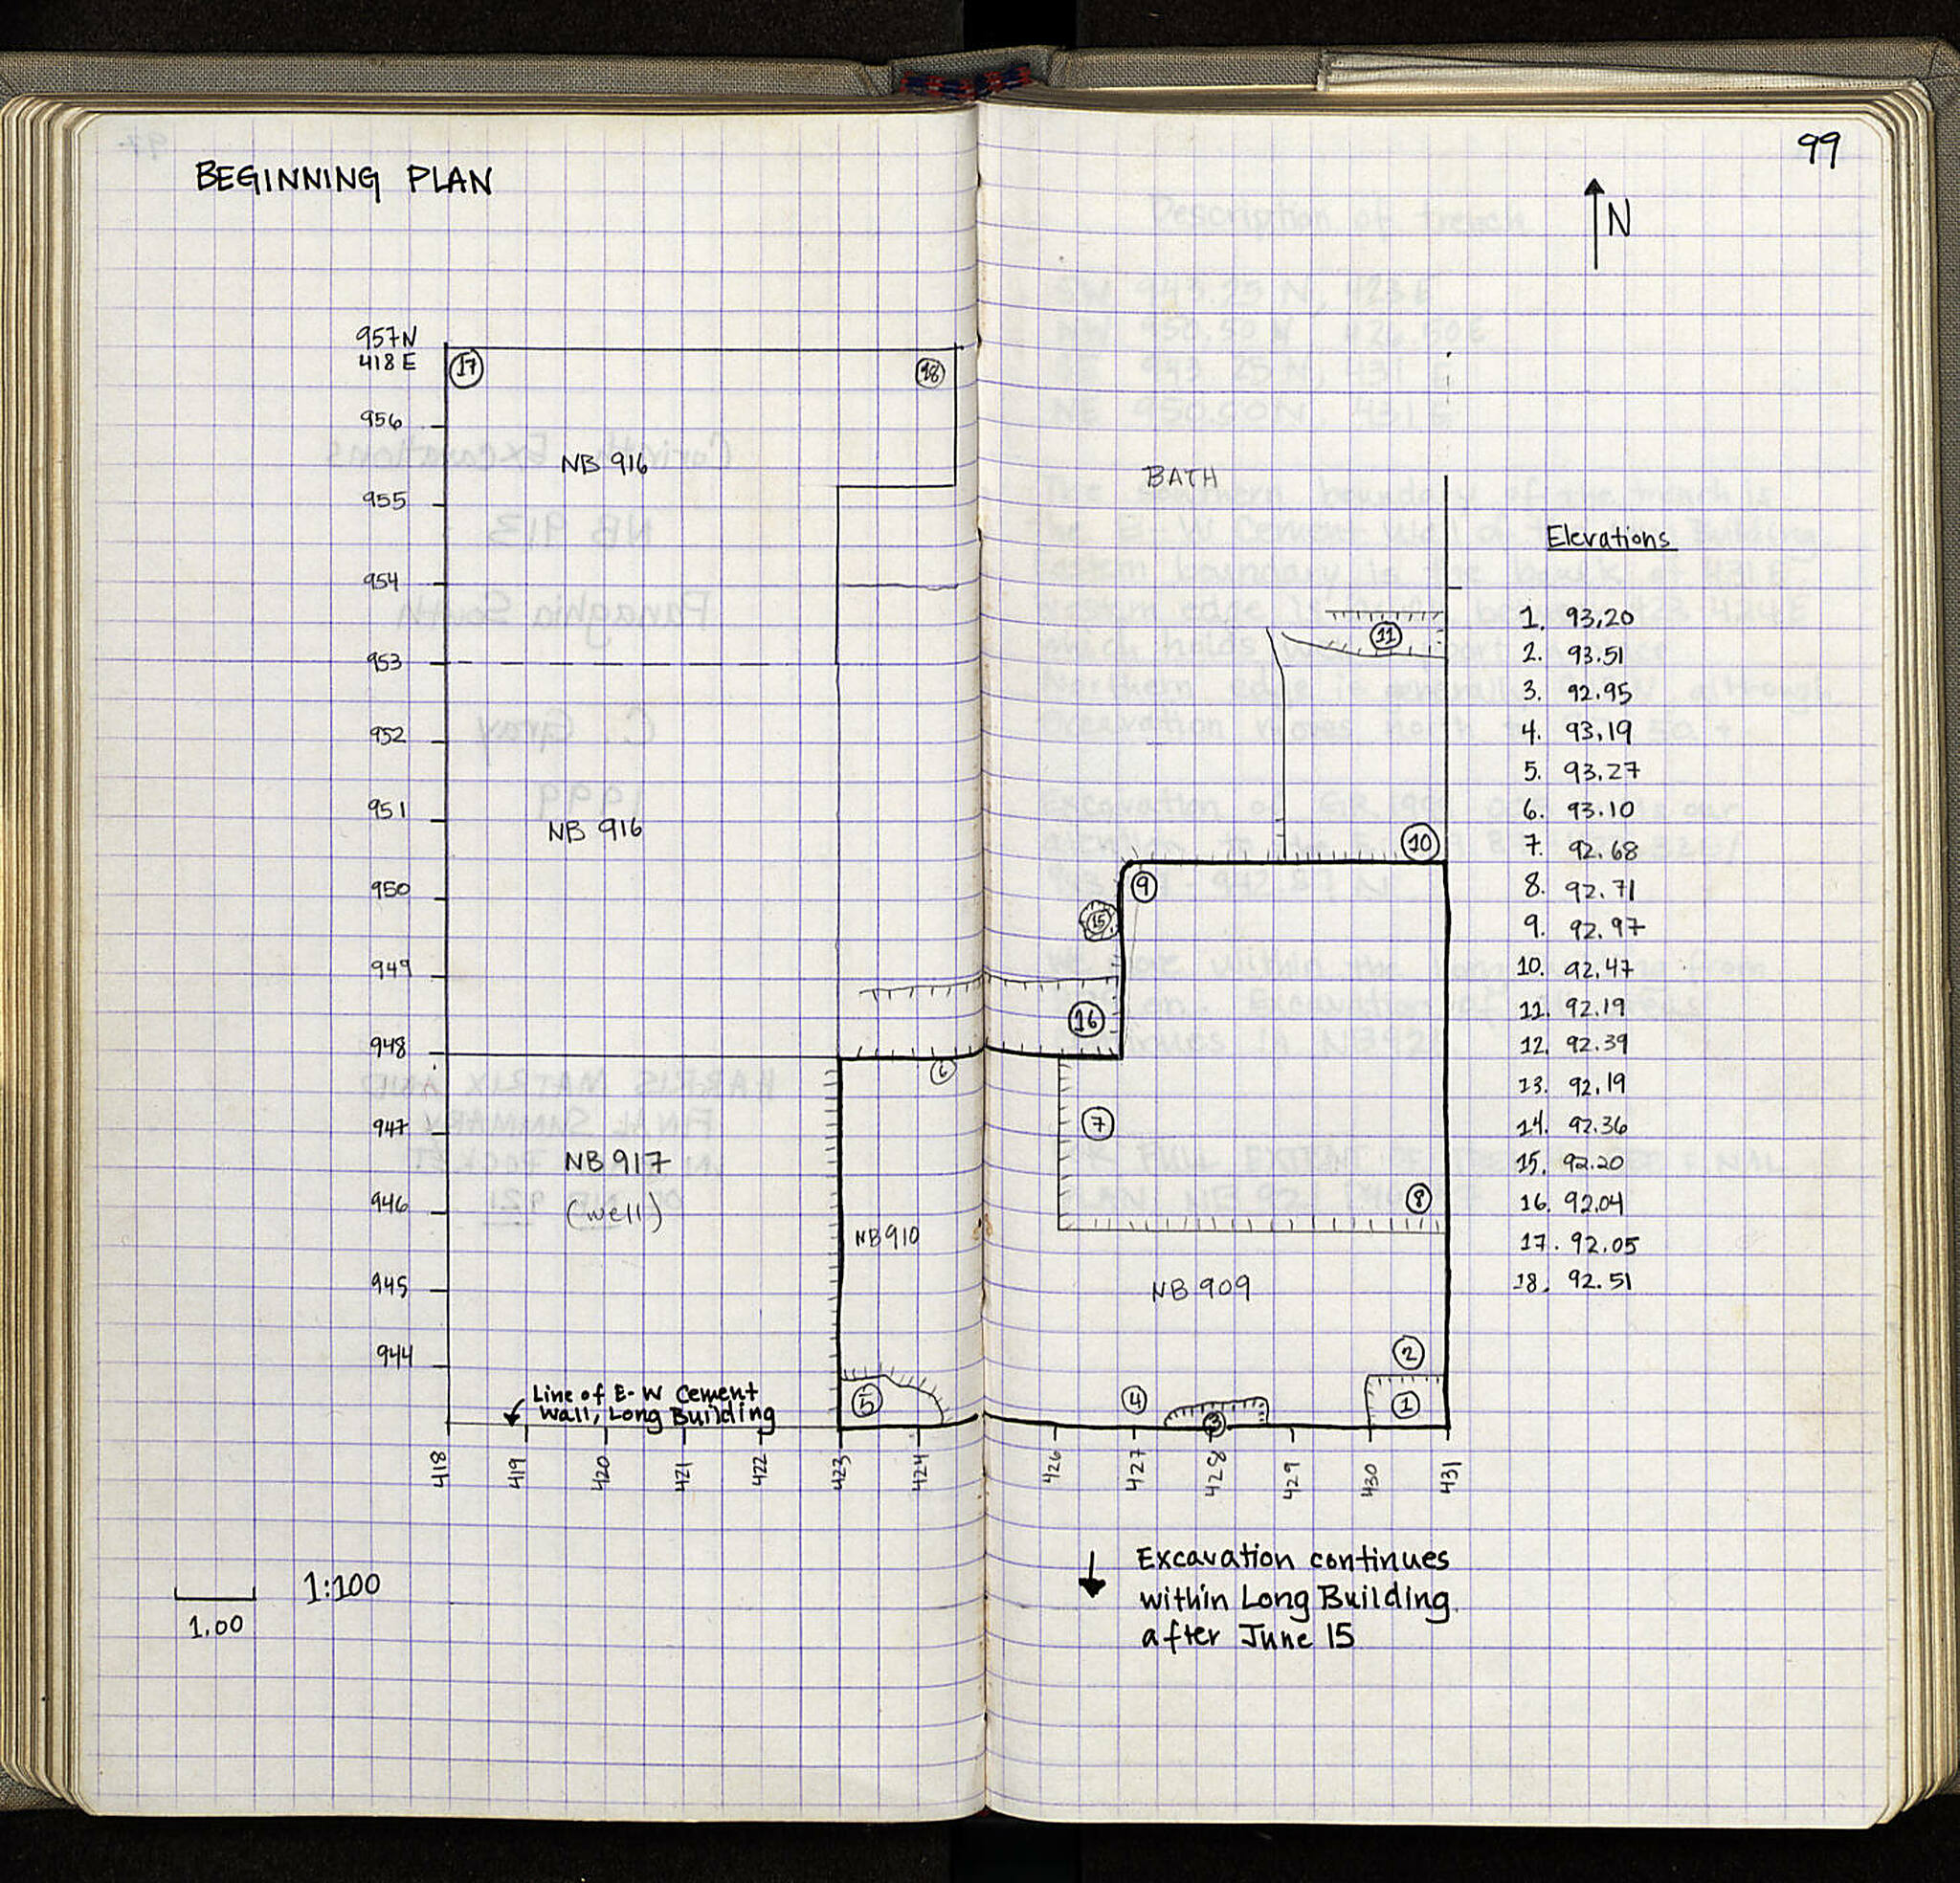 BEGINNING PLAN
99
N
957N
418 E
17
18
956
NB 916
955
954
953
952
951
NB 916
950
949
948
947
NB 917
946
(well)
945
944
Line of E-W Cement
Wall, Long Building
418
419
420
421
422
423
424
426
427
428
429
430
431
BATH
11
10
9
15
16
6
7
8
NB 910
NB 909
2
5
4
3
1
Elevations
1. 93.20
2. 93.51
3. 92.95
4. 93.19
5. 93.27
6. 93.10
7. 92.68
8. 92.71
9. 92.97
10. 92.47
11. 92.19
12. 92.39
13. 92.19
14. 92.36
15. 92.20
16. 92.04
17. 92.05
18. 92.51
1:100
1.00
Excavation continues
within Long Building
after June 15
Description of trench
Corinth Excavations
NB 913
Panaghia South
C. Gray
1999
HARRIS MATRIX AND
FINAL SUMMARY